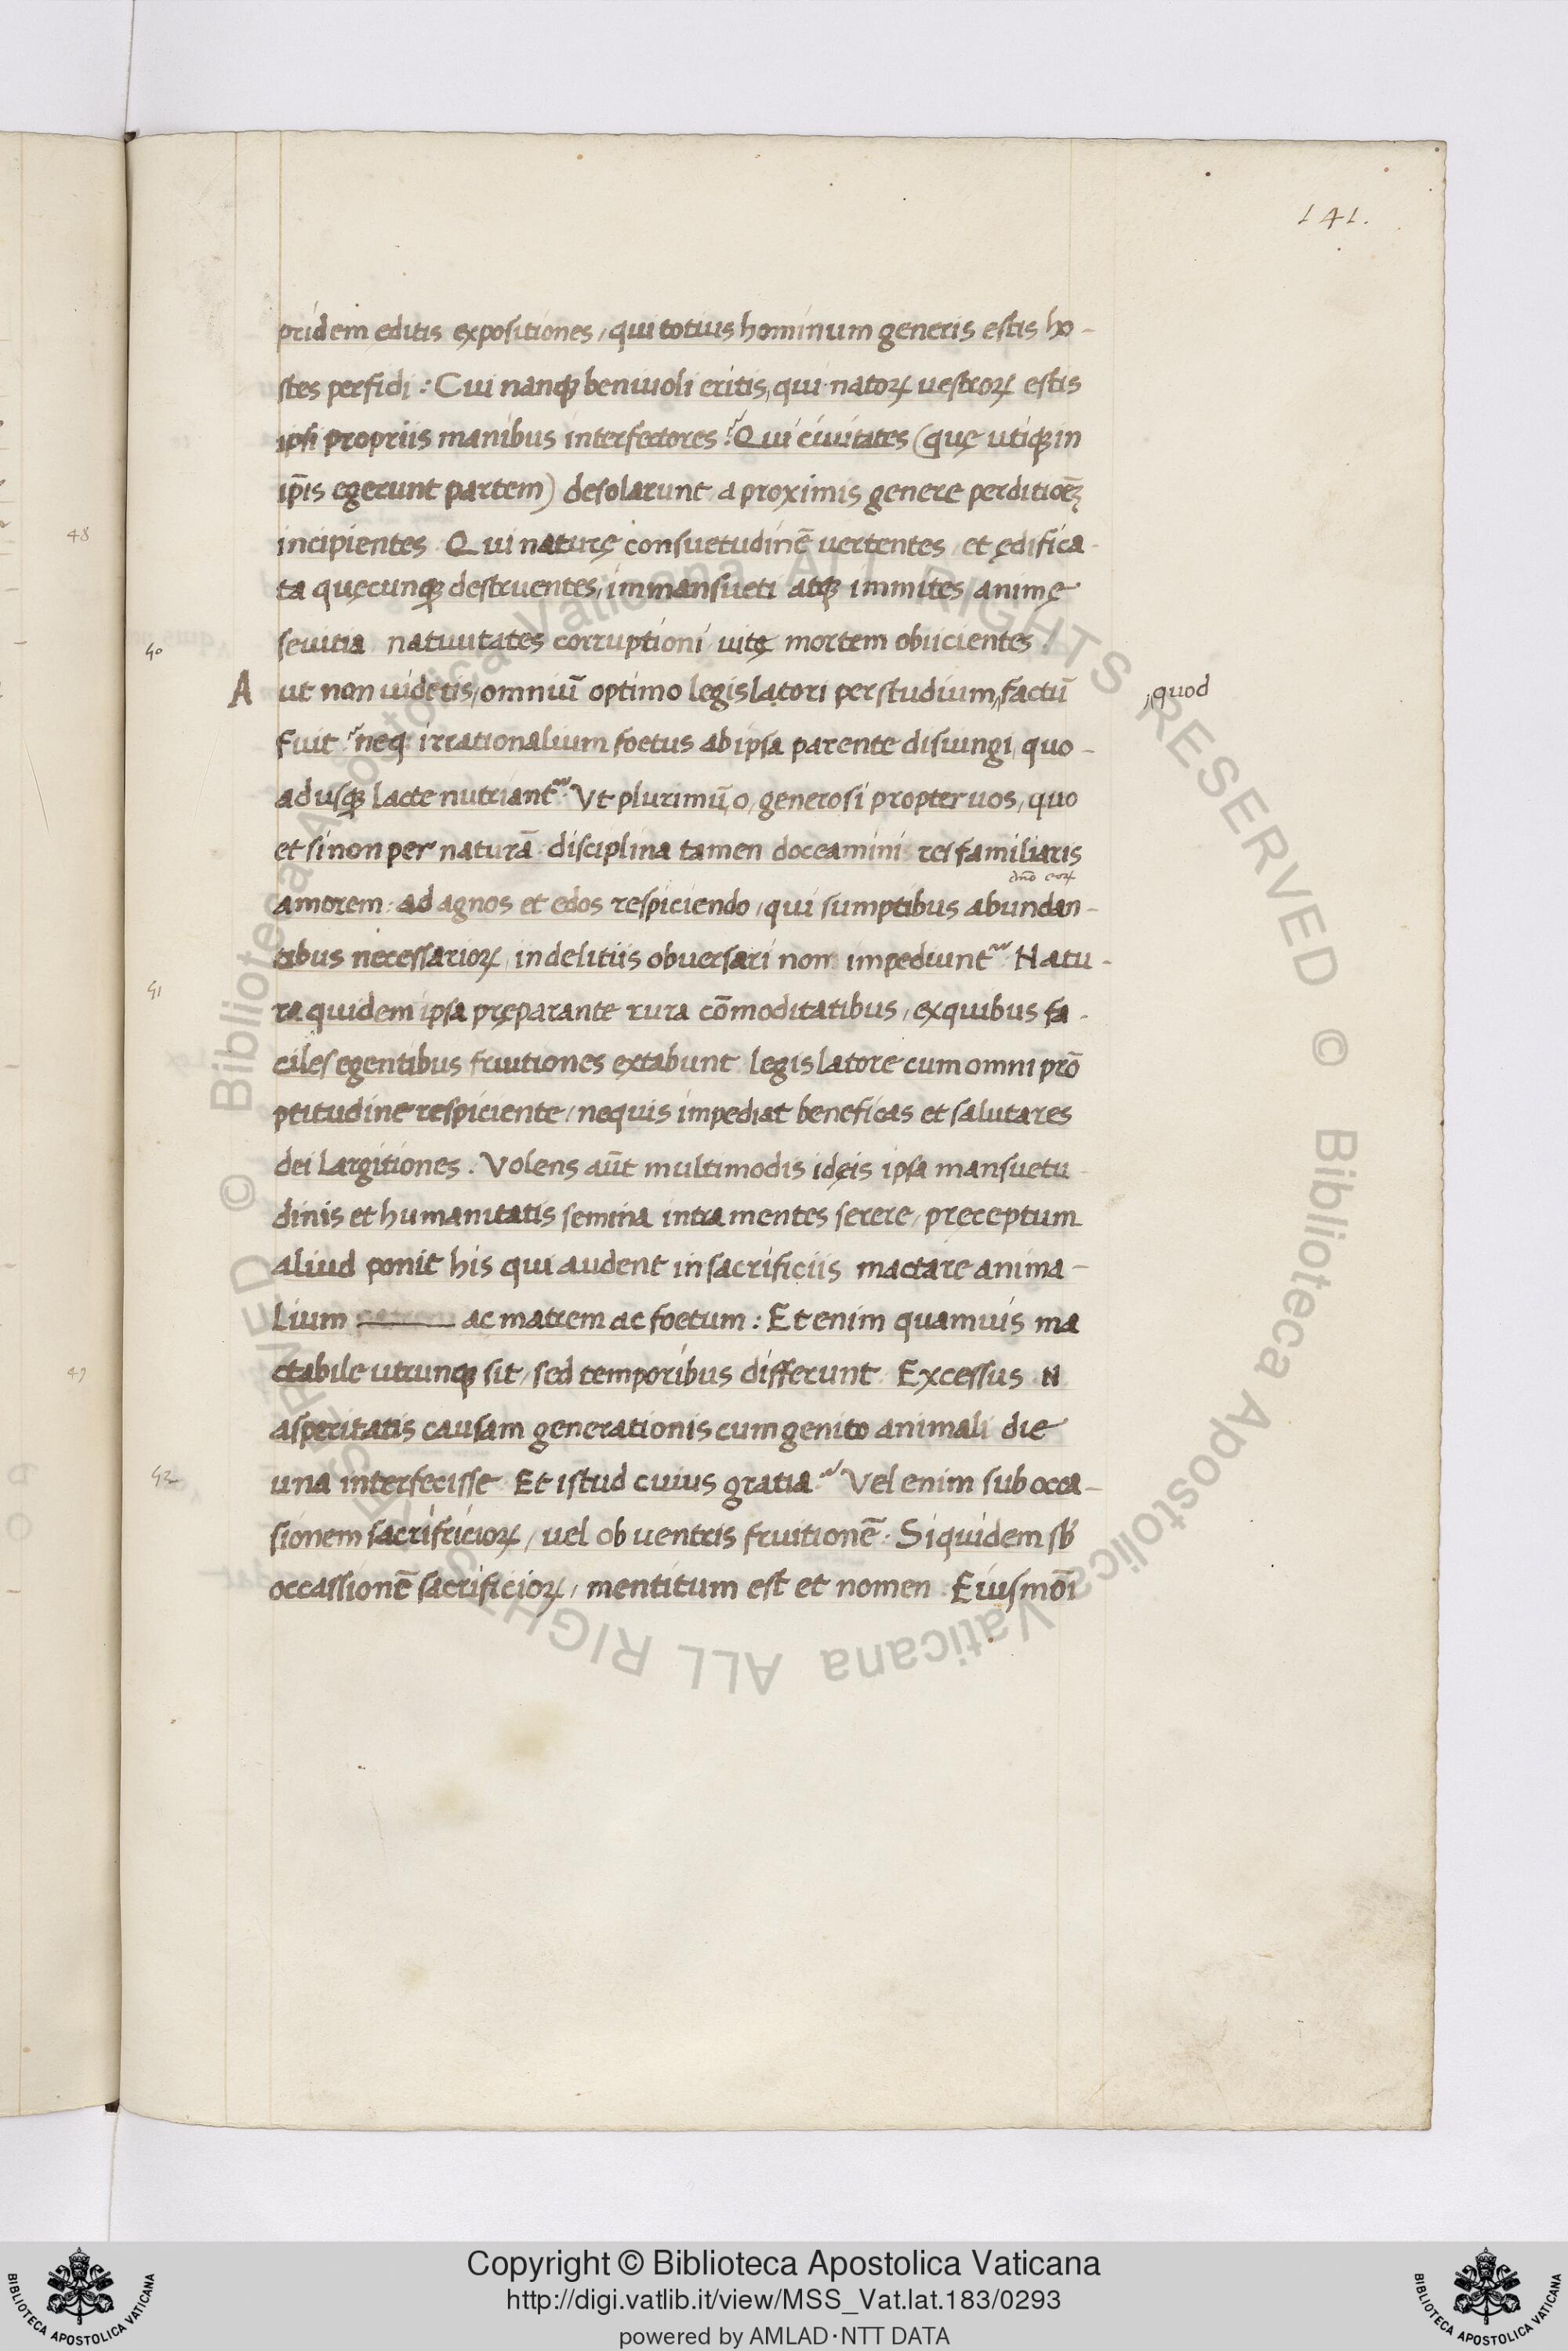 141.
pridem editis expositiones, qui totius hominum generis estis ho-
stes perfidi: Cui nanqꝫ beniuoli eritis, qui natoꝝ uestroꝝ estis
ipsi propriis manibus interfectores? Qui ciuitates (quę utiqꝫ in
ip̄is egerunt partem) desolarunt a proximis genere perditiōēꝫ
48
incipientes Qui naturę consuetudinē uertentes, et ędifica-
ta quęcunqꝫ destruentes, immansueti atqꝫ immites animę
seuitia natiuitates corruptioni uitę mortem obiicientes!
50
Aut non uidetis, omniū optimo legislatori per studium, factū
,quod
fuit? neqꝫ irrationalium foetus ab ipsa parente disiungi, quo-
ad usqꝫ lacte nutriant᷑. Ut plurimū, o, generosi propter uos, quo
et si non per naturā disciplina tamen doceamini rei familiaris
amorem: ad agnos et edos respiciendo, qui sumptibus abundan-
tibus necessarioꝝ, in delitiis obuersari non impediunt᷑. Natu-
51
ra quidem ipsa pręparante rura cōmoditatibus, ex quibus fa-
ciles egentibus fruitiones extabunt legislatore cum omni prō
ptitudine respiciente, nequis impediat beneficas et salutares
dei largitiones. Volens aūt multimodis idęis ipsa mansuetu-
dinis et humanitatis semina intra mentes serere, pręceptum
aliud ponit his qui audent in sacrificiis mactare anima-
lium ac matrem ac foetum: Etenim quamuis ma
47
ctabile utrunqꝫ sit, sed temporibus differunt. Excessus N
asperitatis causam generationis cum genito animali die
52
una interfecisse Et istud cuius gratia? Vel enim sub occa-
sionem sacrifricioꝝ, uel ob uentris fruitionē. Siquidem sb̄
occassionē sacrificioꝝ, mentitum est et nomen. Eiusmōi
© Biblioteca Apostolica Vaticana ALL RIGHTS RESERVED © Biblioteca Apostolica Vaticana ALL RIGHTS RESERVED
BIBLIOTECA APOSTOLICA VATICANA
Copyright © Biblioteca Apostolica Vaticana
http://digi.vatlib.it/view/MSS_Vat.lat.183/0293
powered by AMLAD·NTT DATA
BIBLIOTECA APOSTOLICA VATICANA